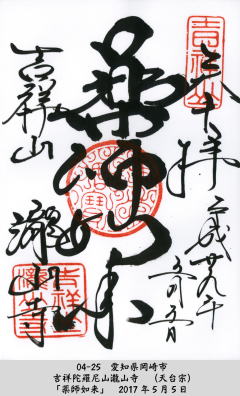 奉拝
平成廿九年
五月五日
薬師如来
吉祥山
瀧山寺
04-25 愛知県岡崎市
吉祥陀羅尼山瀧山寺 （天台宗）
「薬師如来」 2017年5月5日